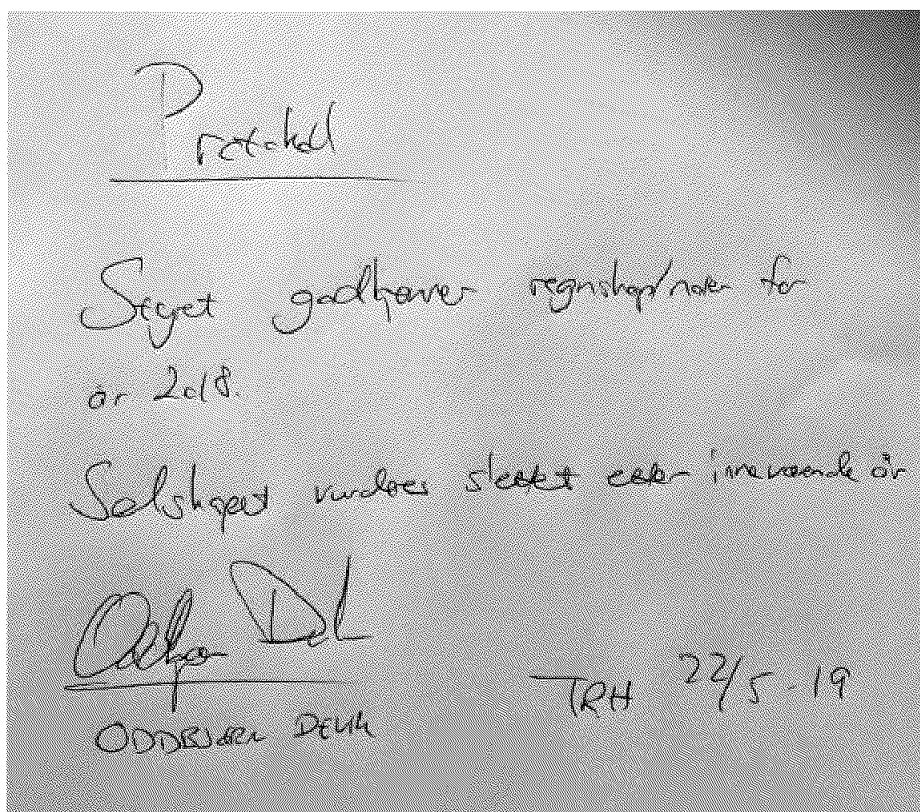 Protokoll
Styret godkjenner regnskap/noter for
år 2018.
Selskapet vurderes slettet etter inneværende år
ODDBJØRN
TRH 22/5-19